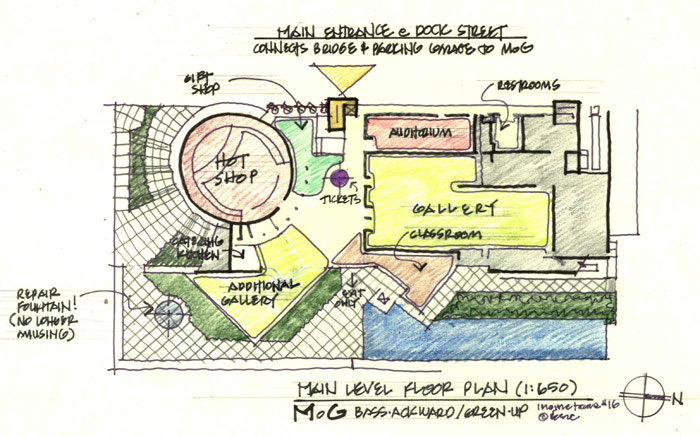 MAIN ENTRANCE @ DOCK STREET
CONNECTS BRIDGE & PARKING GARAGE TO MoG
GIFT
SHOP
RESTROOMS
AUDITORIUM
HOT
SHOP
TICKETS
GALLERY
CLASSROOM
CATERING
KITCHEN
ADDITIONAL
GALLERY
EXIT
ONLY
REPAIR
FOUNTAIN!
(NO LONGER
AMUSING)
MAIN LEVEL FLOOR PLAN (1:650)
N
MoG BASS·ACKWARD/GREEN·UP